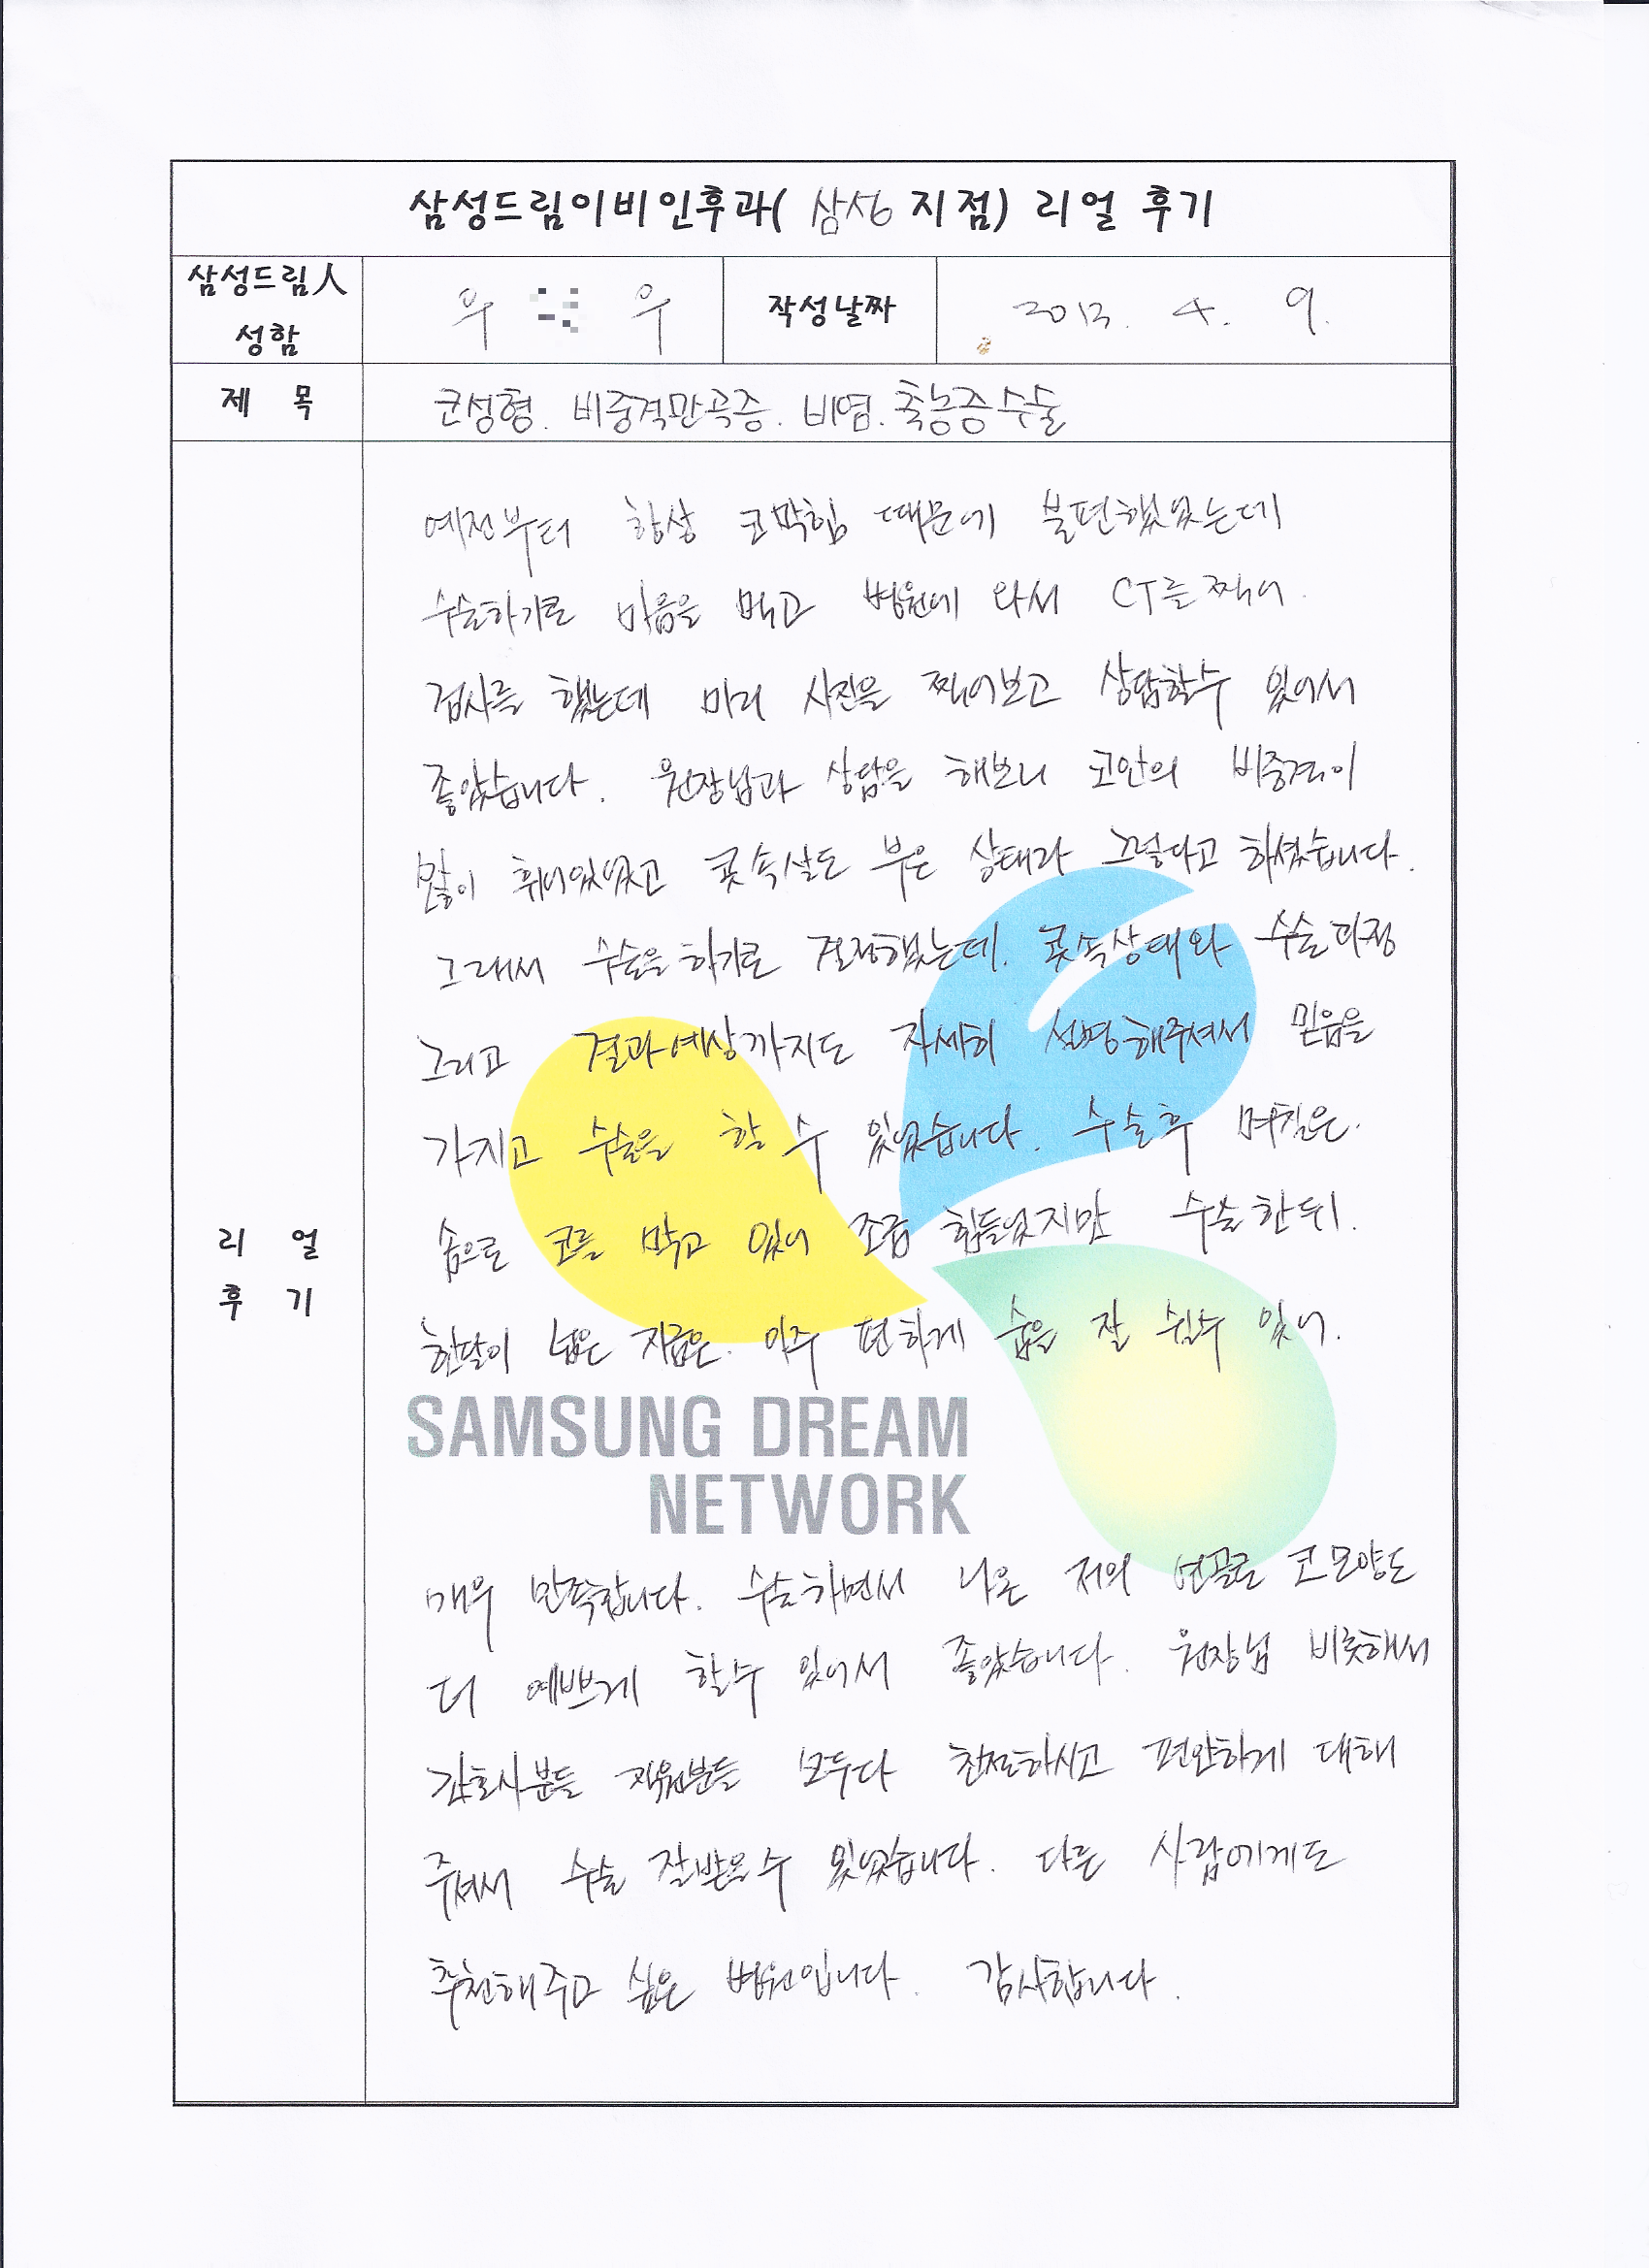 삼성드림이비인후과( 삼성 지점) 리얼 후기
삼성드림人
성함
우 우
작성날짜
2013. 4. 9.
제 목
코성형. 비중격만곡증. 비염. 축농증수술
예전부터 항상 코막힘 때문에 불편했었는데
수술하기로 마음을 먹고 병원에 와서 CT를 찍어.
검사를 했는데 미리 사진을 찍어보고 상담할수 있어서
좋았습니다. 원장님과 상담을 해보니 코안의 비중격이
많이 휘어있었고 콧속살도 부은 상태라 그렇다고 하셨습니다.
그래서 수술을 하기로 결정했는데. 콧속상태와 수술과정
그리고 결과예상까지도 자세히 설명해주셔서 믿음을
가지고 수술을 할 수 있었습니다. 수술후 며칠은.
솜으로 코를 막고 있어 조금 힘들었지만 수술한뒤.
한달이 넘은 지금은. 아주 편하게 숨을 잘 쉴수 있어.
리 얼
후 기
SAMSUNG DREAM
NETWORK
매우 만족합니다. 수술하면서 나온 저의 연골로 코모양도
더 예쁘게 할수 있어서 좋았습니다. 원장님 비롯해서
간호사분들 직원분들 모두다 친절하시고 편안하게 대해
주셔서 수술 잘받을수 있었습니다. 다른 사람에게도
추천해주고 싶은 병원입니다. 감사합니다.